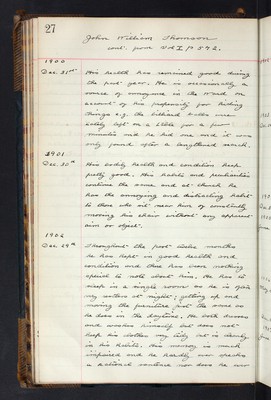 27
John William Thomson
cont. from Vol I p 542.
1900
Dec. 31st His health has remained good during
the past year. He is occasionally a
source of annoyance in the Ward on
account of his propensity for hiding
things e.g. the billiard balls were
left on a table for a few
minutes and he hid one and it was
only found after a lengthened search.
1901
Dec. 30th His bodily health and condition keep
pretty good. His habits and peculiarities
continue the same and at church he
has the annoying and distracting habit
to those who sit near him of constantly
moving his chair without any apparent
aim or object.
Dec. 29th Throughout the past twelve months
he has kept in good health and
condition and there has been nothing
special to note about him. He has to
sleep in a single room as he is
at night; getting up and
moving the furniture just the same as
he does in the daytime. He both dresses
and washes himself but does not
keep his clothes very tidy nor is cleanly
in his habits. His memory is much
impaired and he hardly ever speaks
a rational sentence nor does he ever